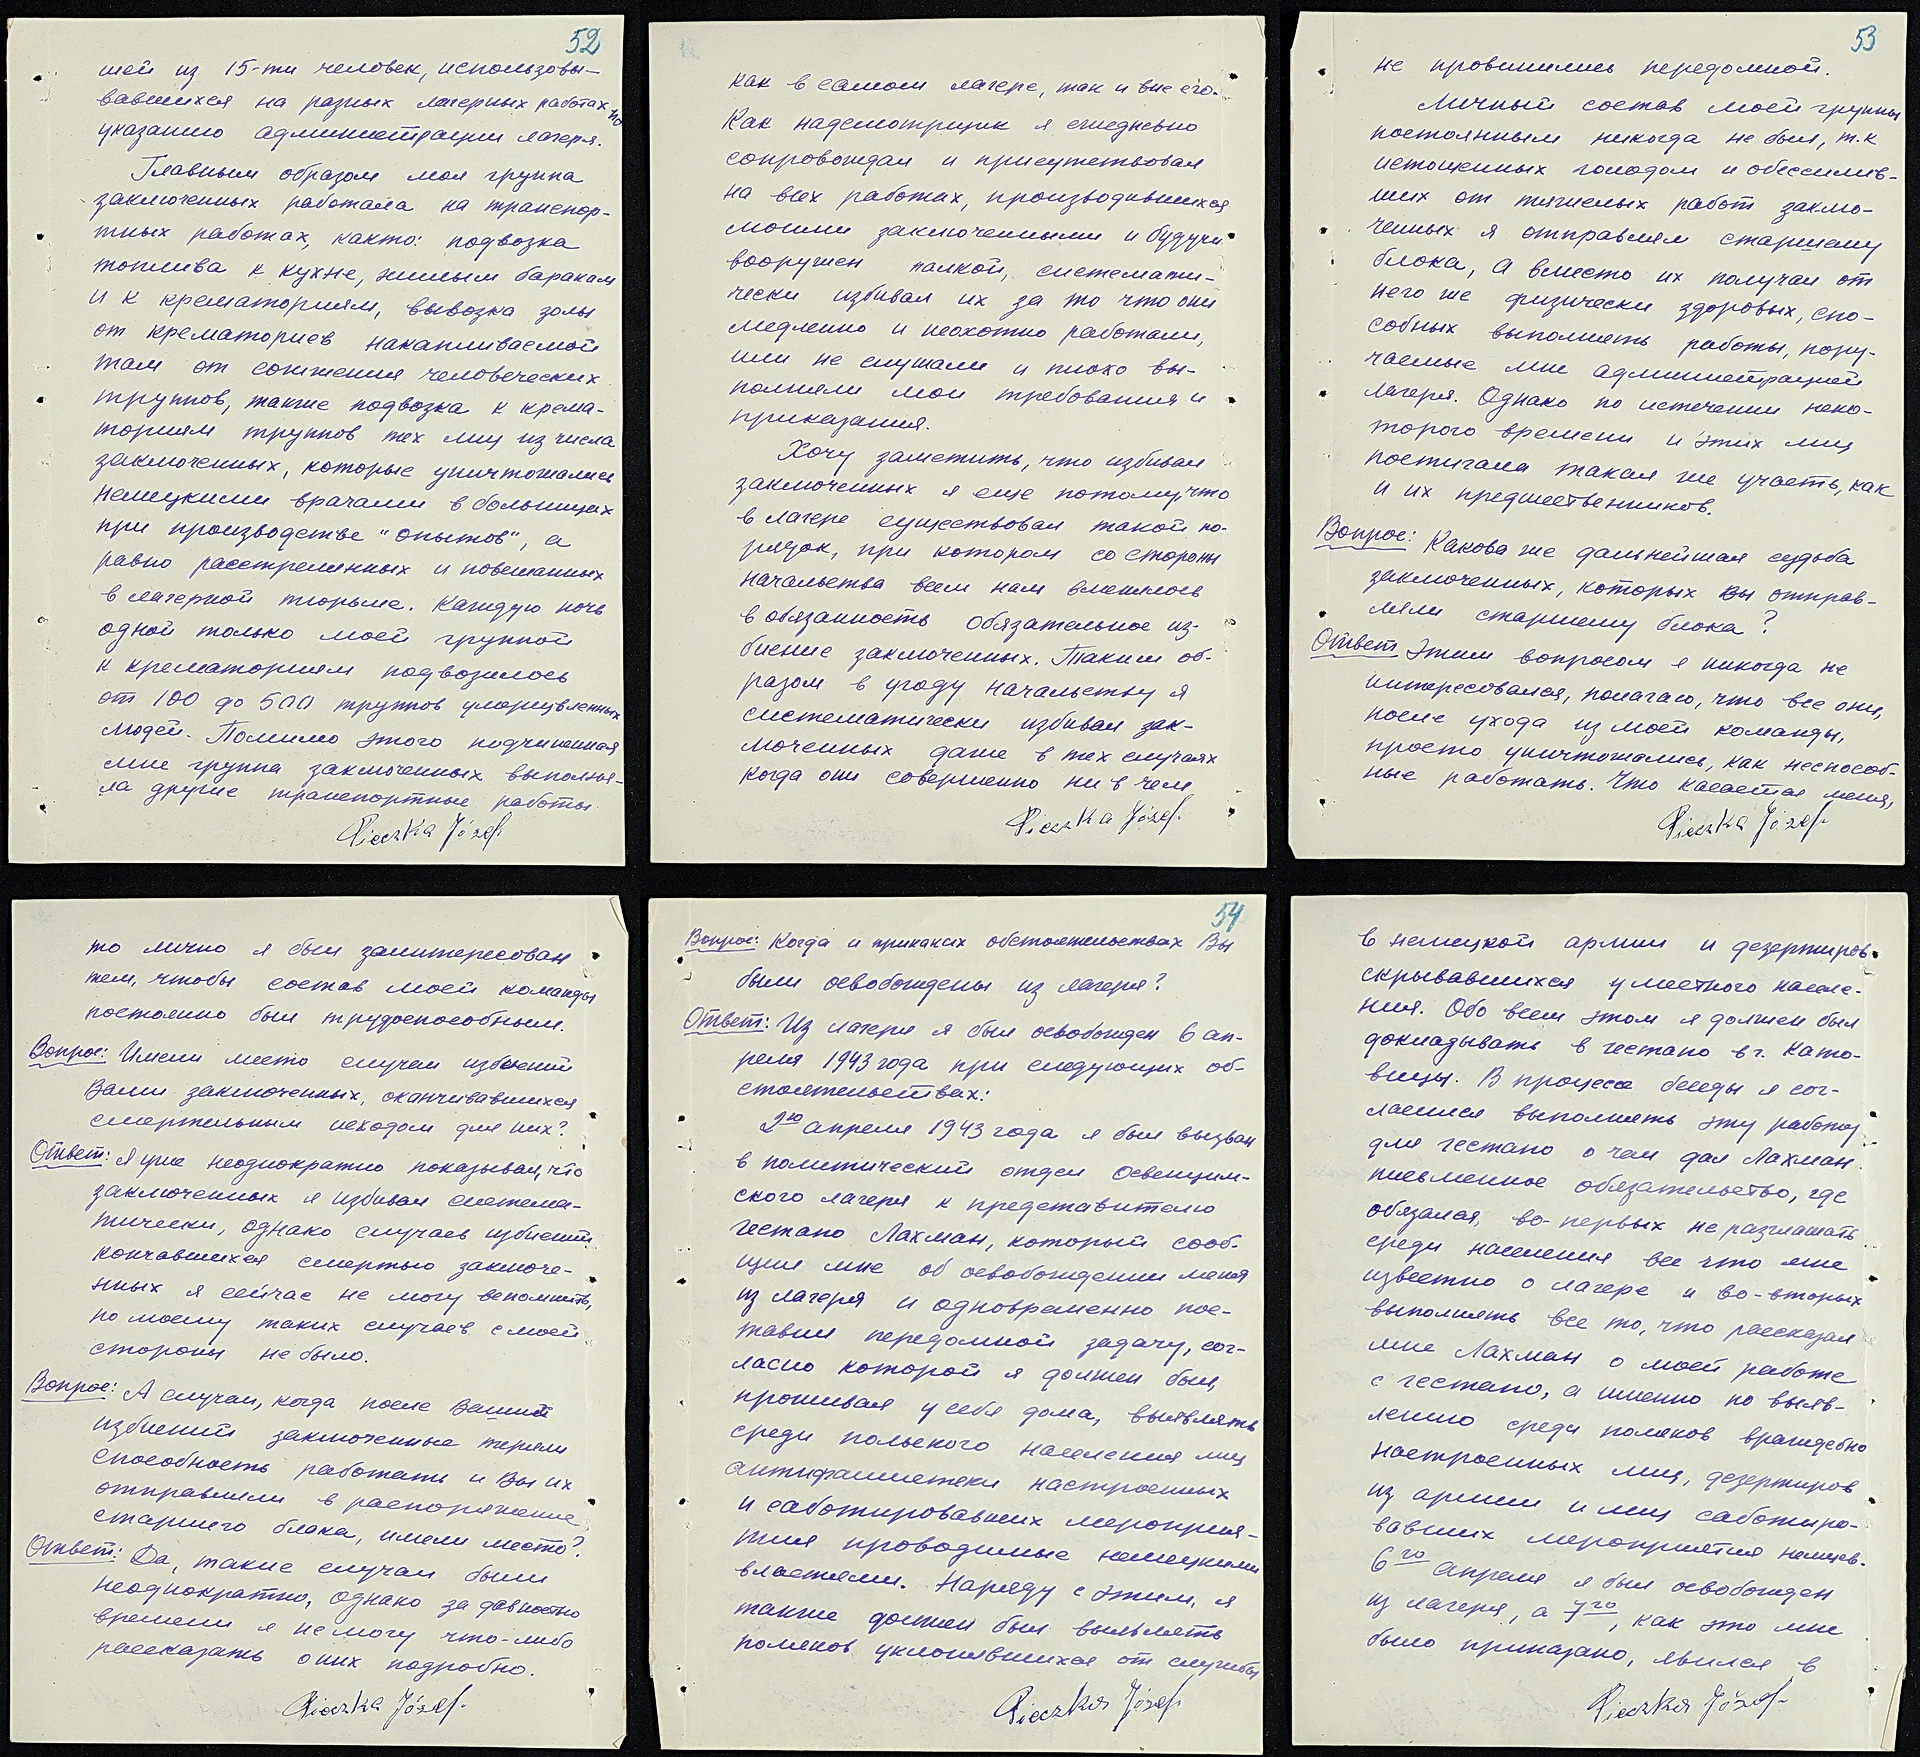 52
шей из 15-ти человек, использовы-
вавшихся на разных лагерных работах по
указанию администрации лагеря.
Главным образом моя группа
заключенных работала на транспор-
тных работах, както: подвозка
топлива к кухне, жилым баракам
и к крематориям, вывозка золы
от крематориев накапливаемой
там от сожжения человеческих
труппов, также подвозка к крема-
ториям труппов тех лиц из числа
заключенных, которые уничтожались
немецкими врачами в больницах
при производстве "опытов", а
равно расстрелянных и повешанных
в лагерной тюрьме. Каждую ночь
одной только моей группой
к крематориям подвозилось
от 100 до 500 труппов умерщвленных
людей. Помимо этого подчиненная
мне группа заключенных выполня-
ла другие транспортные работы
Pieczka Józef.
как в самом лагере, так и вне его.
Как надсмотрщик я ежедневно
сопровождал и присутствовал
на всех работах, производившихся
моими заключенными и будучи
вооружен палкой, системати-
чески избивал их за то что они
медленно и неохотно работали,
или не слушали и плохо вы-
полняли мои требования и
приказания.
Хочу заметить, что избивал
заключенных я еще потому что
в лагере существовал такой по-
рядок, при котором со стороны
начальства всем нам вменялось
в обязанность обязательное из-
биение заключенных. Таким об-
разом в угоду начальству я
систематически избивал зак-
люченных даже в тех случаях
когда они совершенно ни в чем
Pieczka Józef.
53
не провинились передомной.
Личный состав моей группы
постоянным никогда не был, т.к
истощенных голодом и обессилев-
ших от тяжелых работ заклю-
ченных я отправлял старшему
блока, а вместо их получал от
него же физически здоровых, спо-
собных выполнять работы, пору-
чаемые мне администрацией
лагеря. Однако по истечении неко-
торого времени и этих лиц
постигала такая же участь, как
и их предшественников.
Вопрос: Какова же дальнейшая судьба
заключенных, которых вы отправ-
ляли старшему блока?
Ответ Этим вопросом я никогда не
интересовался, полагаю, что все они,
после ухода из моей команды,
просто уничтожались, как неспособ-
ные работать. Что касается меня,
Pieczka Józef.
то лично я был заинтересован
тем, чтобы состав моей команды
постоянно был трудоспособным.
Вопрос: Имели место случаи избиений
Вами заключенных, оканчивавшихся
смертельным исходом для них?
Ответ: Я уже неоднократно показывал, что
заключенных я избивал система-
тически, однако случаев избиений
кончавшихся смертью заключе-
нных я сейчас не могу вспомнить,
по моему таких случаев с моей
стороны не было.
Вопрос: А случаи, когда после Ваший
избиений заключенные теряли
способность работать и Вы их
отправляли в распоряжение
старшего блока, имели место?
Ответ: Да, такие случаи были
неоднократно, однако за давностью
времени я не могу что-либо
рассказать о них подробно.
Pieczka Józef.
54
Вопрос: Когда и прикаких обстоятельствах Вы
были освобождены из лагеря?
Ответ: Из лагеря я был освобожден 6 ап-
реля 1943 года при следующих об-
стоятельствах:
2го апреля 1943 года я был вызван
в политический отдел Освенцим-
ского лагеря к представителю
гестапо Лахман, который сооб-
щил мне об освобождении меня
из лагеря и одновременно пос-
тавил передомной задачу, сог-
ласно которой я должен был,
проживая у себя дома, выявлять
среди польского населения лиц
антифашистски настроенных
и саботировавших мероприя-
тия проводимые немецкими
властями. Наряду с этим, я
также должен был выявлять
поляков уклонявшихся от службы
Pieczka Józef.
в немецкой армии и дезертиров
скрывавшихся у местного населе-
ния. Обо всем этом я должен был
докладывать в гестапо в г. Като-
вицы. В процессе беседы я сог-
ласился выполнять эту работу
для гестапо о чем дал Лахман
письменное обязательство, где
обязался, во-первых не разглашать
среди населения все что мне
известно о лагере и во-вторых
выполнять все то, что рассказал
мне Лахман о моей работе
с гестапо, а именно по выяв-
лению среди поляков враждебно
настроенных лиц, дезертиров
из армии и лиц саботиро-
вавших мероприятия немцев.
6го апреля я был освобожден
из лагеря, а 7го, как это мне
было приказано, явился в
Pieczka Józef.